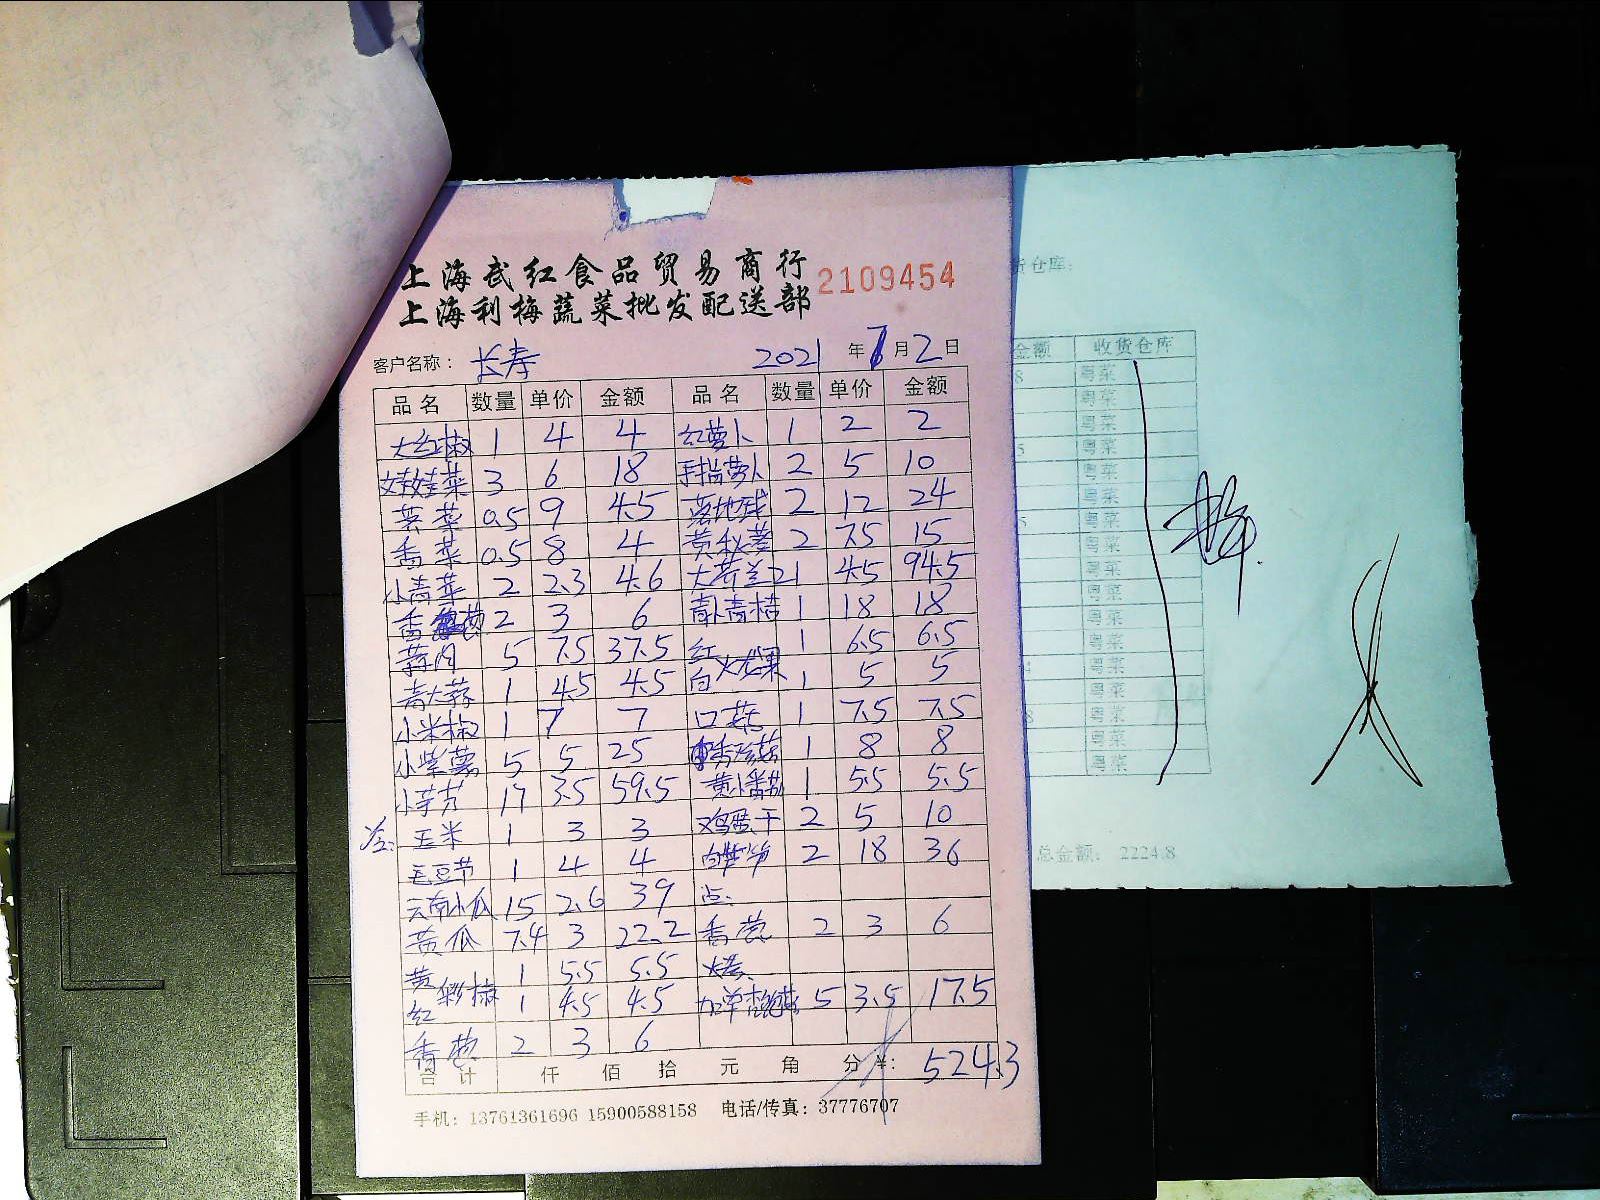 上海武红食品贸易商行
上海利梅蔬菜批发配送部
2109454
客户名称： 长寿 2021年7月2日
品名 数量 单价 金额 品名 数量 单价 金额
大红椒 1 4 4 红萝卜 1 2 2
娃娃菜 3 6 18 手指萝卜 2 5 10
0.5 9 4.5 落地残 2 12 24
香菜 0.5 8 4 黄秋葵 2 7.5 15
小青菜 2 2.3 4.6 大芥兰 21 4.5 94.5
香葱 2 3 6 青小青桔 1 18 18
蒜肉 5 7.5 37.5 红 1 6.5 6.5
青大蒜 1 4.5 4.5 白火龙果 1 5 5
小米椒 1 7 7 口菇 1 7.5 7.5
小紫薯 5 5 25 秀珍菇 1 8 8
小芋艿 17 3.5 59.5 黄小番茄 1 5.5 5.5
玉米 1 3 3 鸡蛋干 2 5 10
毛豆节 1 4 4 2 18 36
云南小瓜 15 2.6 39 点:
黄瓜 7.4 3 22.2 香葱 2 3 6
黄 1 5.5 5.5
红彩椒 1 4.5 4.5 加单 5 3.5 17.5
香葱 2 3 6
合计 仟 佰 拾 元 角 分 ¥: 524.3
手机：13761361696 15900588158 电话/传真：37776707
货仓库:
金额 收货仓库
8 粤菜
粤菜
粤菜
5 粤菜
粤菜
粤菜
5 粤菜
粤菜
粤菜
粤菜
粤菜
粤菜
粤菜
粤菜
8 粤菜
粤菜
粤菜
总金额: 2224.8